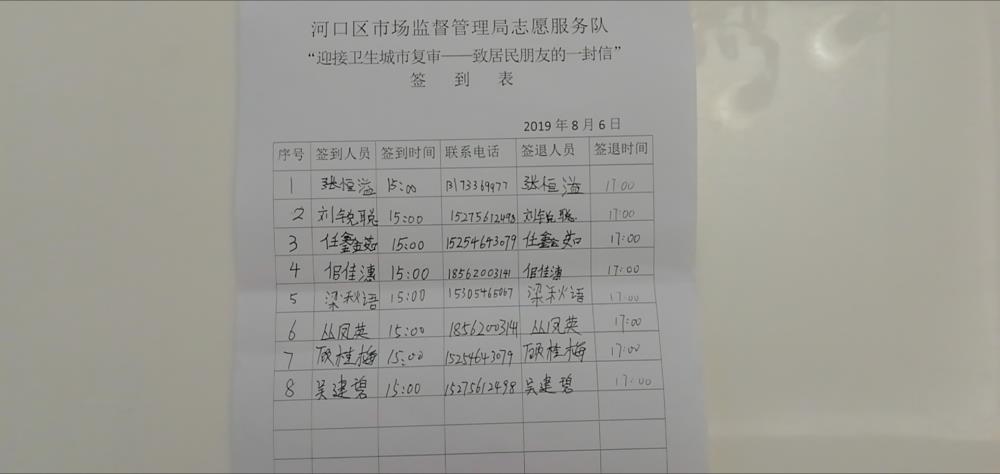 河口区市场监督管理局志愿服务队
“迎接卫生城市复审——致居民朋友的一封信”
签 到 表
2019 年 8 月 6 日
序号 签到人员 签到时间 联系电话 签退人员 签退时间
1 张恒溢 15:00 张恒溢 17:00
2 刘锐聪 15:00 15275612498 刘锐聪 17:00
3 任鑫茹 15:00 15254643079 任鑫茹 17:00
4 佀佳潓 15:00 18562003141 佀佳潓 17:00
5 梁秋语 15:00 15305465067 梁秋语 17:00
6 丛凤英 15:00 18562003141 丛凤英 17:00
7 顾桂梅 15:00 15254643079 顾桂梅 17:00
8 吴建碧 15:00 15275612498 吴建碧 17:00